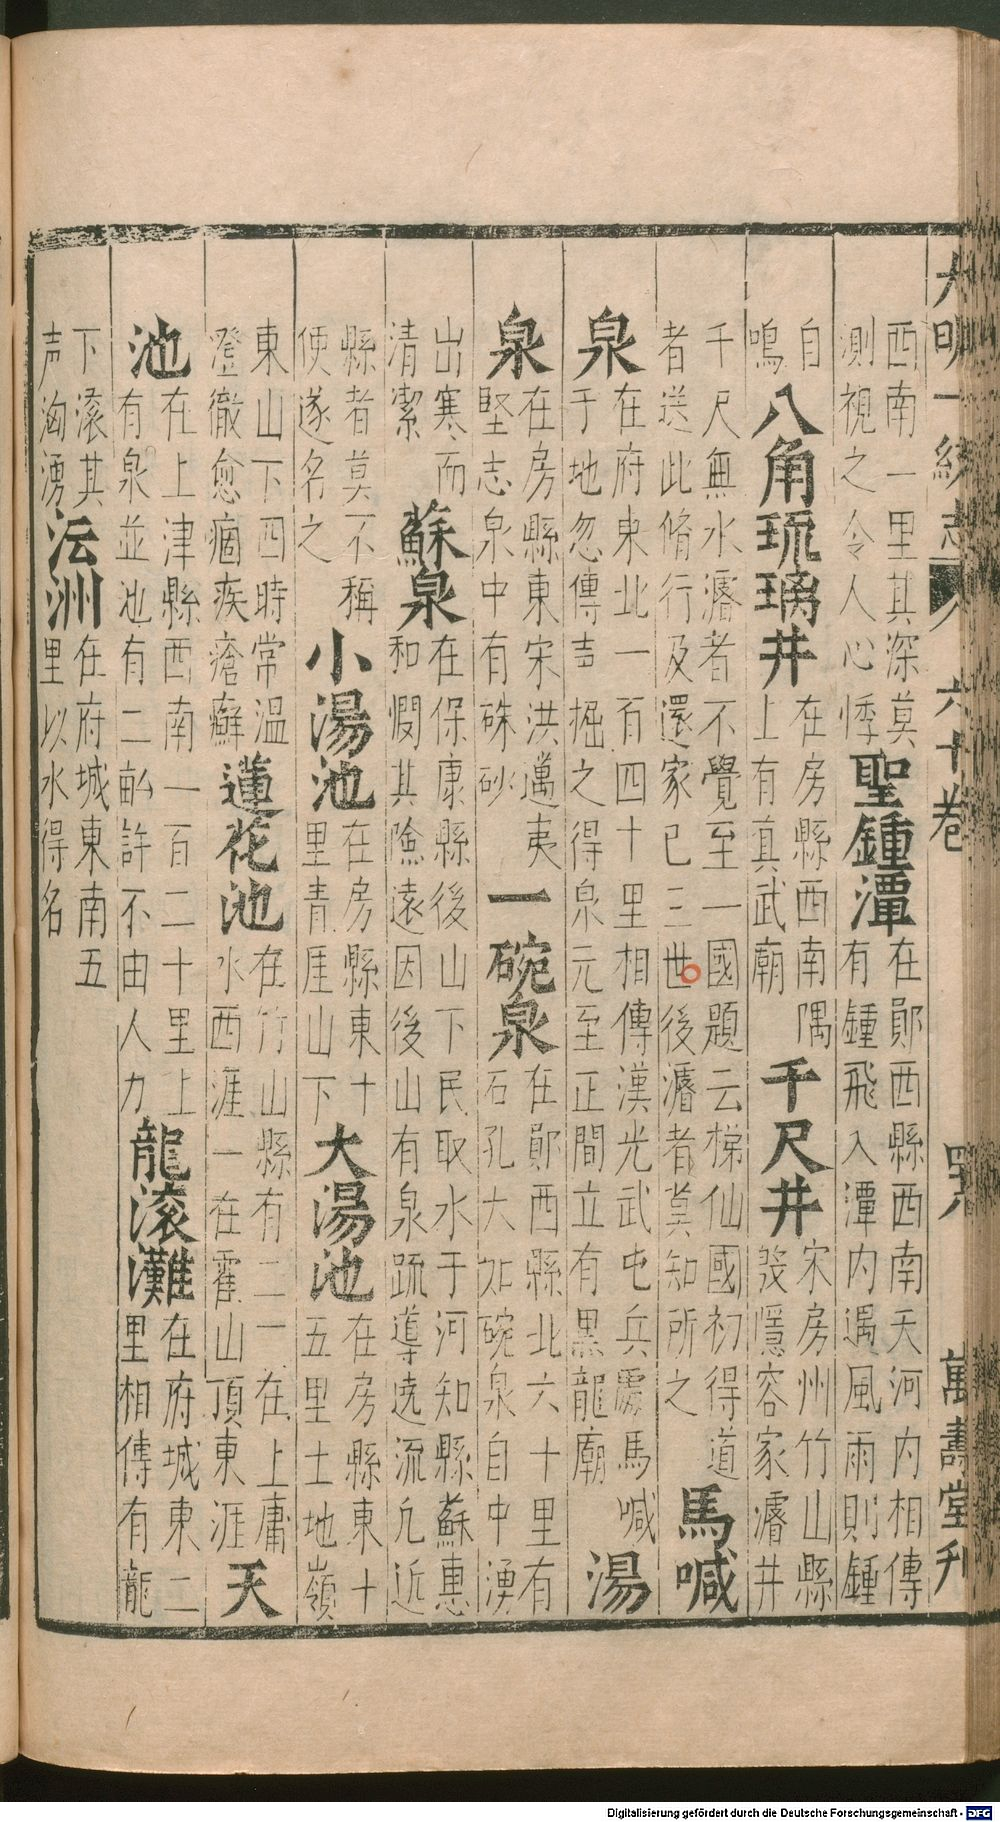 大明一統志 六十卷 四八 萬壽堂刊
西南一里其深莫
測視之令人心悸
聖鍾潭
在鄖西縣西南天河内相傳
有鍾飛入潭内遇風雨則鍾
自
鳴
八角琉璃井
在房縣西南隅
上有真武廟
千尺井
宋房州竹山縣
隱容家濬井
千尺無水濬者不覺至一國題云梯仙國初得道
者送此脩行及還家已三世後濬者莫知所之
馬喊
泉
在府東北一百四十里相傳漢光武屯兵處馬喊
于地忽傳声掘之得泉元至正間立有黒龍廟
湯
泉
在房縣東宋洪邁夷
堅志泉中有硃砂
一碗泉
在鄖西縣北六十里有
石孔大如碗泉自中湧
出寒而
清潔
蘇泉
在保康縣後山下民取水于河知縣蘇惠
和憫其險遠因後山有泉疏導遶流凢近
縣者莫不稱
便遂名之
小湯池
在房縣東十
里青厓山下
大湯池
在房縣東十
五里土地嶺
東山下四時常温
澄徹愈痼疾瘡癬
蓮花池
在竹山縣有二一在上庸
水西涯一在霍山頂東涯
天
池
在上津縣西南一百二十里上
有泉並池有二畝許不由人力
龍滚灘
在府城東二
里相傳有龍
下滚其
声洶湧
沄洲
在府城東南五
里以水得名
Digitalisierung gefördert durch die Deutsche Forschungsgemeinschaft - DFG